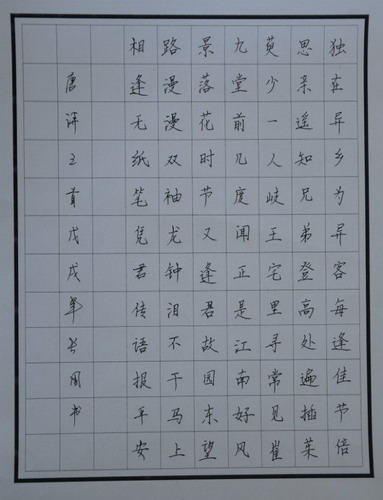 独在异乡为异客每逢佳节倍
思亲遥知兄弟登高处遍插茱
萸少一人岐王宅里寻常见崔
九堂前几度闻正是江南好风
景落花时节又逢君故园东望
路漫漫双袖龙钟泪不干马上
相逢无纸笔凭君传语报平安
唐诗三首戊戌年国书